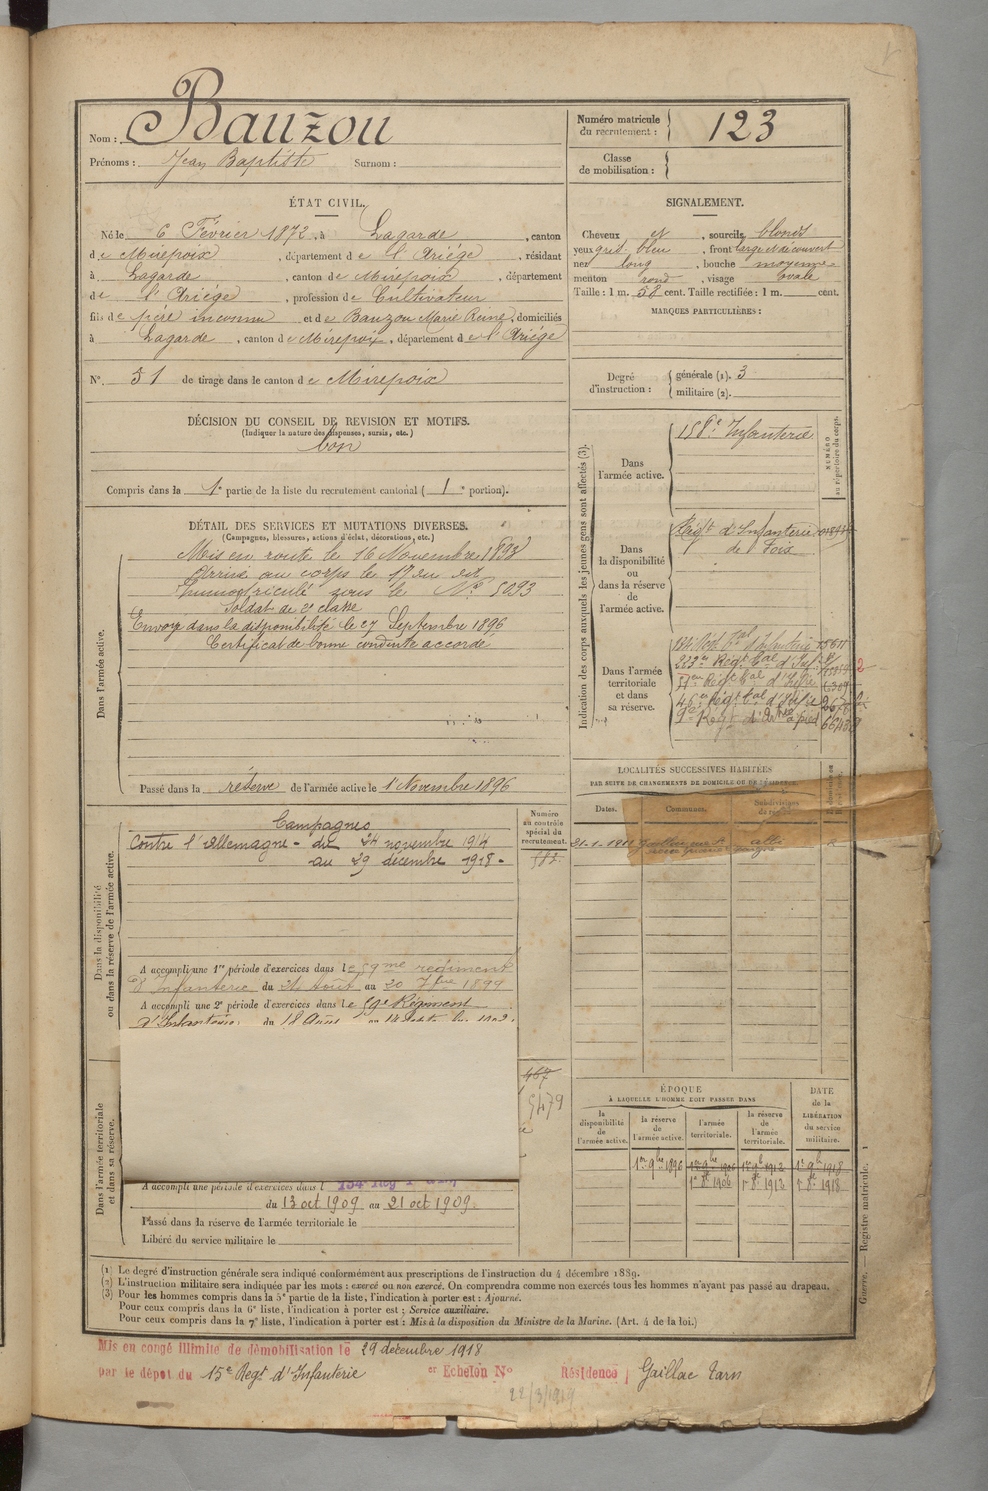 Nom : Bauzou
Prénoms : Jean Baptiste Surnom :
Numéro matricule du recrutement : 123
Classe de mobilisation :
ÉTAT CIVIL.
Né le 6 Février 1872, à Lagarde, canton
de Mirepoix, département de l'Ariège, résidant
à Lagarde, canton de Mirepoix, département
de l'Ariège, profession de Cultivateur
fils de père inconnu et de Bauzou Marie Reine, domiciliés
à Lagarde, canton de Mirepoix, département de l'Ariège
N° 51 de tirage dans le canton de Mirepoix
SIGNALEMENT.
Cheveux et, sourcils blonds
yeux gris bleu, front large et découvert
nez long, bouche moyenne
menton rond, visage ovale
Taille : 1 m. 58 cent. Taille rectifiée : 1 m. cent.
MARQUES PARTICULIÈRES :
Degré d'instruction : générale (1). 3
militaire (2).
DÉCISION DU CONSEIL DE REVISION ET MOTIFS.
(Indiquer la nature des dispenses, sursis, etc.)
bon
Compris dans la 1e partie de la liste du recrutement cantonal (1e portion).
DÉTAIL DES SERVICES ET MUTATIONS DIVERSES.
(Campagnes, blessures, actions d'éclat, décorations, etc.)
Dans l'armée active.
Mis en route le 16 Novembre 1893
Arrivé au corps le 17 du dit
Immatriculé sous le N° 5093
Soldat de 2e classe
Envoyé dans la disponibilité le 27 Septembre 1896
Certificat de bonne conduite accordé
Passé dans la réserve de l'armée active le 1 Novembre 1896
Indication des corps auxquels les jeunes gens sont affectés (3).
NUMÉRO au répertoire du corps.
Dans l'armée active.
158e Infanterie
Dans la disponibilité ou dans la réserve de l'armée active.
Régt d'Infanterie
de Foix
Dans l'armée territoriale et dans sa réserve.
Dans la disponibilité ou dans la réserve de l'armée active.
Campagnes
Contre l'allemagne - du 24 novembre 1914
au 29 décembre 1918 -
Numéro au contrôle spécial du recrutement.
582
A accompli une 1re période d'exercices dans le 59me régiment
d'Infanterie du 24 Août au 20 7bre 1899
A accompli une 2e période d'exercices dans le 59e Régiment
d'Infanterie du 18 Août
LOCALITÉS SUCCESSIVES HABITÉES
PAR SUITE DE CHANGEMENTS DE DOMICILE OU DE RÉSIDENCE.
Dates. Communes. Subdivisions de région.
21-1-1911 albi
Dans l'armée territoriale et dans sa réserve.
467
5479
A accompli une période d'exercices dans l 134 Reg
du 13 oct 1909 au 21 oct 1909.
Passé dans la réserve de l'armée territoriale le
Libéré du service militaire le
ÉPOQUE
À LAQUELLE L'HOMME DOIT PASSER DANS
DATE de la LIBÉRATION du service militaire.
la disponibilité de l'armée active. la réserve de l'armée active. l'armée territoriale. la réserve de l'armée territoriale.
1er 9bre 1896 1er 9bre 1906 1er 9b 1912 1e 9b 1918
1e 8t 1906 1e 8t 1912 1e 8t 1918
(1) Le degré d'instruction générale sera indiqué conformément aux prescriptions de l'instruction du 4 décembre 1889.
(2) L'instruction militaire sera indiquée par les mots : exercé ou non exercé. On comprendra comme non exercés tous les hommes n'ayant pas passé au drapeau.
(3) Pour les hommes compris dans la 5e partie de la liste, l'indication à porter est : Ajourné.
Pour ceux compris dans la 6e liste, l'indication à porter est : Service auxiliaire.
Pour ceux compris dans la 7e liste, l'indication à porter est : Mis à la disposition du Ministre de la Marine. (Art. 4 de la loi.)
Guerre. — Registre matricule. 1
Mis en congé illimité de démobilisation le 29 décembre 1918
par le dépot du 15e Regt d'Infanterie er Echelon N° Résidence Gaillac Tarn
22/3/1919